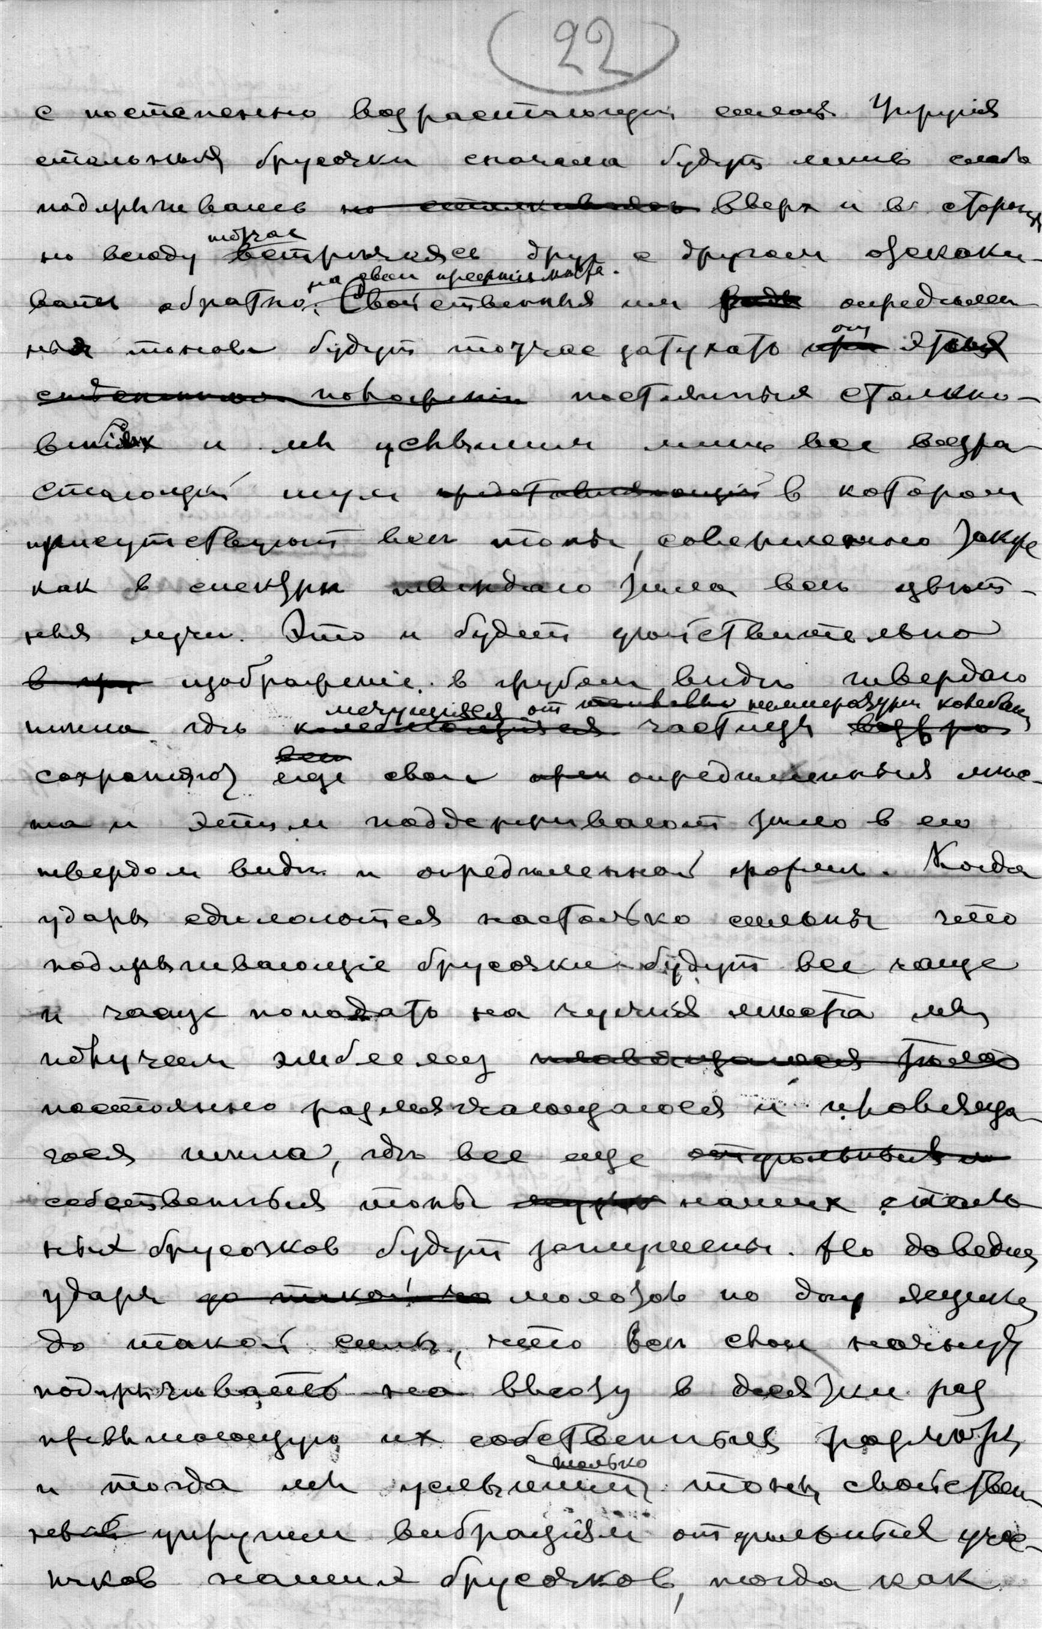 22
с постепенно возрастающей силой. Упругия
стальныя брусочки сначала будут лишь слабо
подпрыгивать но сталкиваясь вверх и в стороны
но всюду тотчас встречаясь друг с другом отскаки-
вать обратно на свои прежния места. Свойственныя им определен
ныя тоны будут тотчас затухать от
постоянныя столкно-
вениях и мы услышим лишь все возра
стающий шум представляющий в котором
присутствуют все тоны, совершенно также
как в спектре твердаго тела все цвет-
ныя лучи. Это и будет действительно
изображение в грубом виде твердаго
тела где мечущияся от температуры колебаний частицы
сохраняют еще свои определенныя мес-
та и этим поддерживают тело в его
твердом виде и определенной форме. Когда
удары сделаются настолько сильны что
подпрыгивающие брусочки будут все чаще
и чаще попадать на чужия места мы
получаем эмблему плавящагося тела
постоянно размягчающагося и
тела, где все еще отдельныя
собственныя тоны наших сталь
ных брусочков будут заглушены. Но доведем
удары до такой молотов по дну ящика
до такой силы, что все они начнут
подпрыгивать на высоту в десятки раз
превышающую их собственныя размеры
и тогда мы услышим только тоны свойствен
ныя упругим вибрациям отдельных
наших брусочков, тогда как